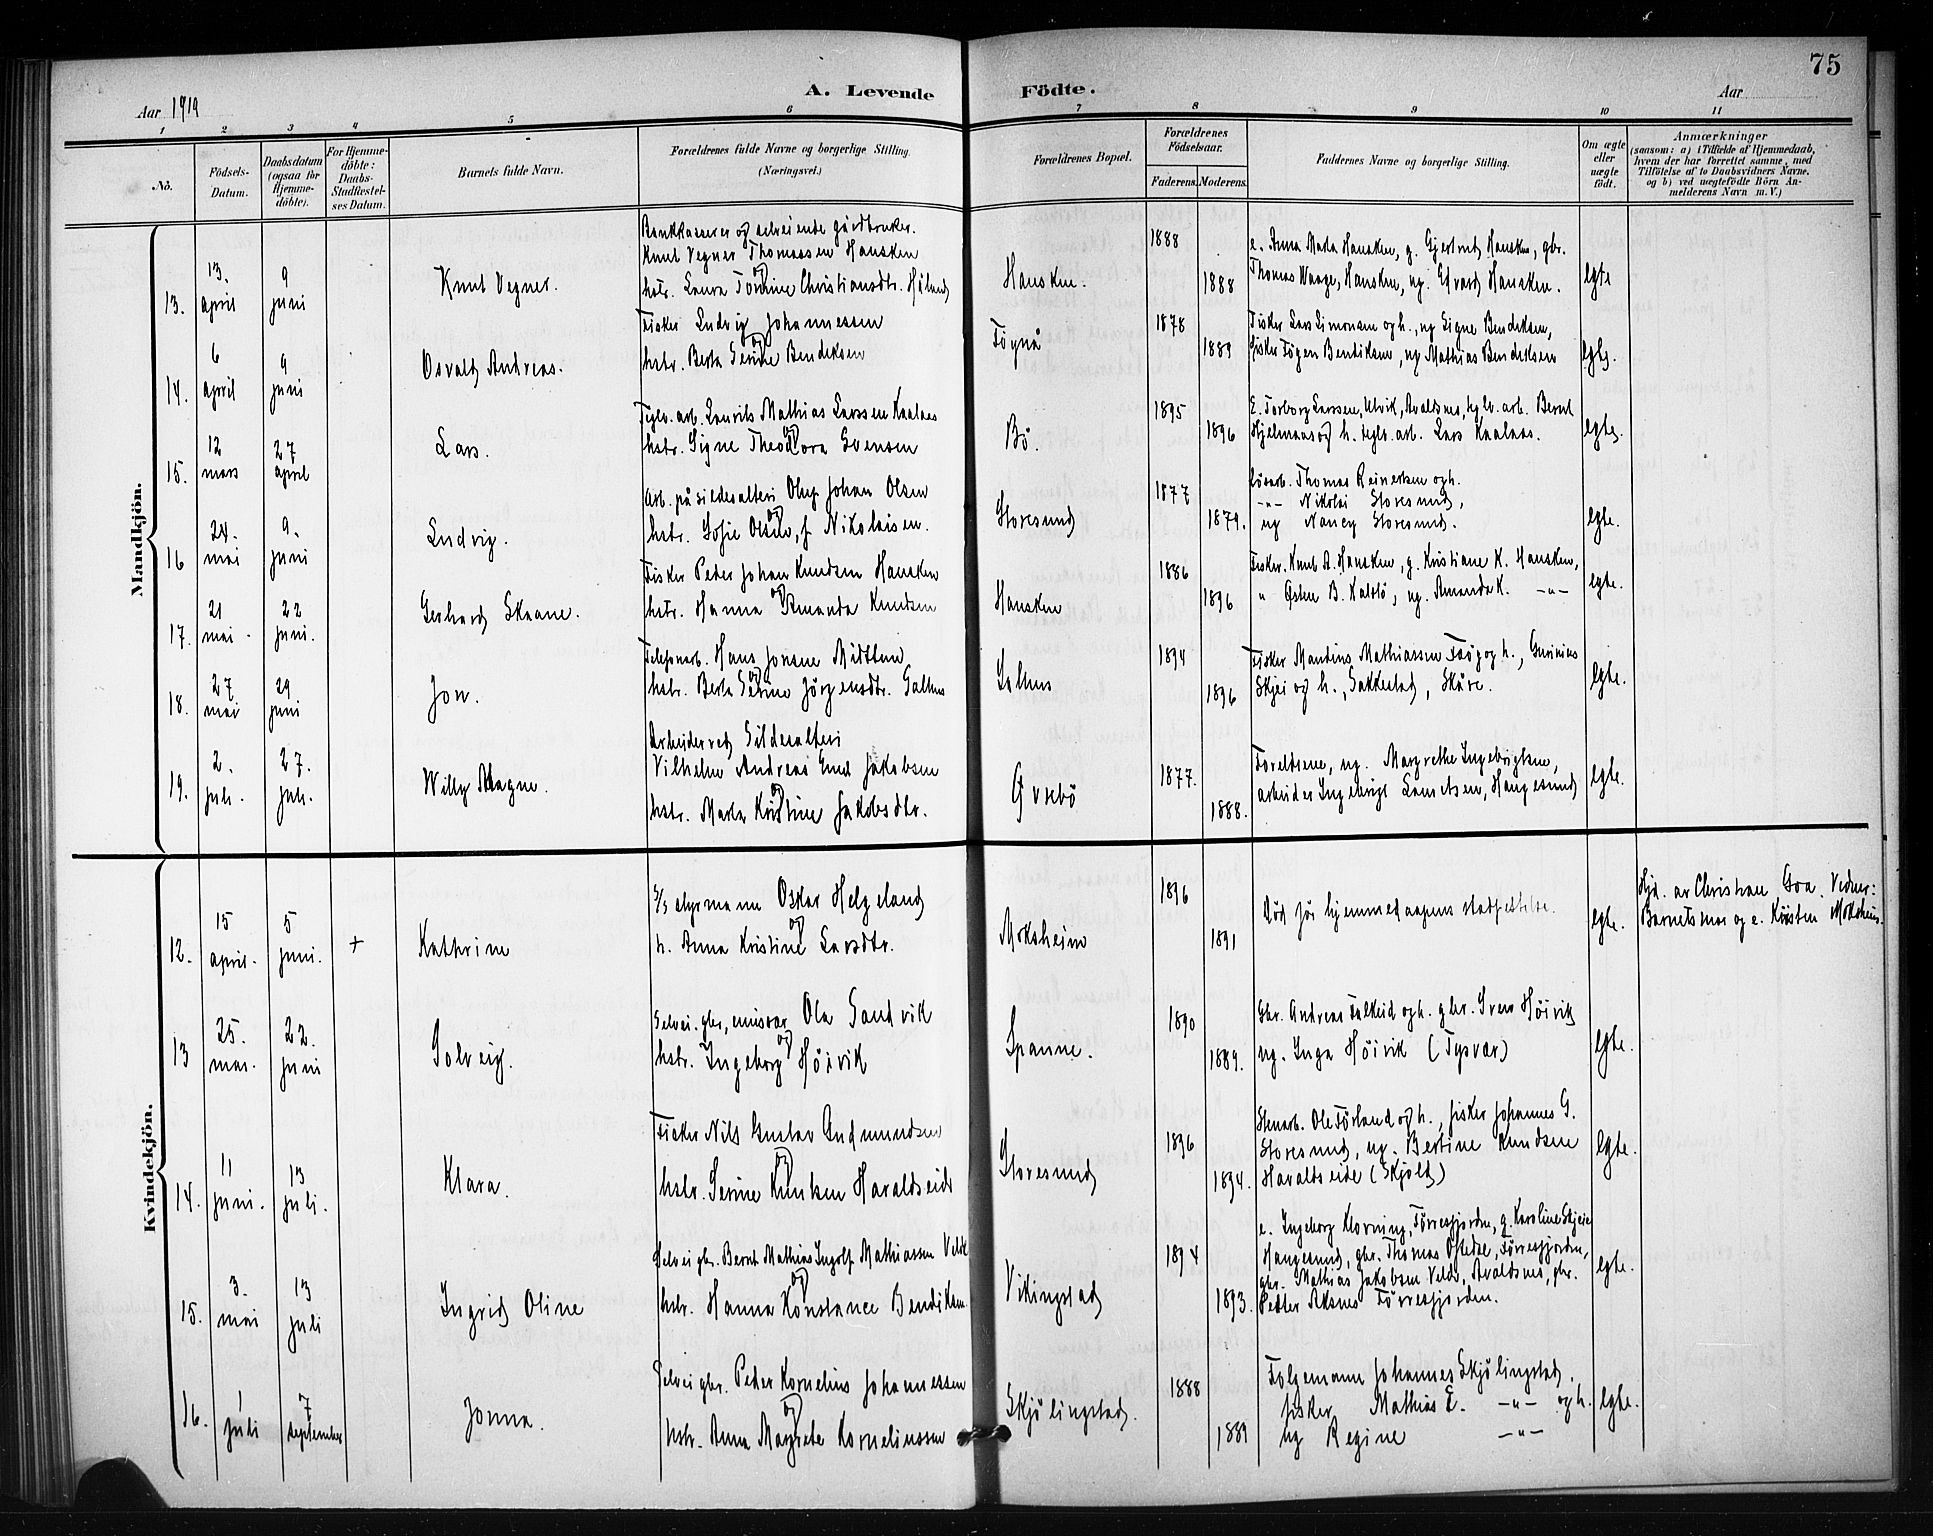 75
Aar 1919
A. Levende Födte.
Aar
1 2 3 4 5 6 7 8 9 10 11
No.
Födsels-Datum.
Daabsdatum (ogsaa for Hjemme-döbte).
For Hjemme-döbte: Daabs-Stadfæstel-ses Datum.
Barnets fulde Navn.
Forældrenes fulde Navne og borgerlige Stilling. (Næringsvei.)
Forældrenes Bopæl.
Forældrenes Födselsaar.
Faderens. Moderens.
Faddernes Navne og borgerlige Stilling.
Om ægte eller uægte födt.
Anmærkninger
(saasom: a) i Tilfælde af Hjemmedaab, hvem der har forrettet samme, med Tilföielse af to Daabsvidners Navne, og b) ved uægtefödte Börn An-melderens Navn m. V.)
Mandkjön.
13. 13. april 9 juni
Knut Vegner.
Bankkasserer og selveiende gårdbruker.
Knut Vegner Thomassen Hausken
og
hstr. Laura Tomine Christiansdtr. Höland
Hausken.
1888 1888
e. Anna Marta Hausken, g. Gjertrud Hausken, gbr.
Thomas Waage, Hausken, ug. Edvard Hausken.
egte
14. 6 april 9 juni
Osvald Andreas.
Fisker Ludvig Johannessen
og
hstr. Berta Serine Bendiksen
Fögnå
1878 1889
Fisker Lars Simonsen og h., ug Signe Bendiksen,
fisker Bendiksen, ug Mathias Bendiksen
egte.
15. 12 mars 27 april
Lars.
Teglv. arb. Laurits Mathias Larssen Kaalaas
og
hstr. Signe Theodora Svensen
Bö.
1895 1896
E. Torborg Larssen, Utvik, Avaldsnes, teglv. arb. Bernt
Hjelmaas og h. teglv. arb. Lars Kaalaas.
egte.
16 24. mai 9. juni
Ludvig.
Arb. på sildesalteri Oluf Johan Olsen
og
hstr. Sofie Olsen, f. Nikolaisen.
Storesund
1877 1879.
Lösarb. Thomas Reinertsen og h.
-"- Nikolai Storesund,
ug Nancy Storesund.
egte.
17. 21 mai. 22 juni.
Gerhard Skaane.
Fisker Peder Johan Knudsen Hausken
og
hstr. Hanna Amanda Knudsen
Hausken
1886 1896
Fisker. Knut A. Hausken, g. Kristiane K. Hausken,
" Östen B. Kalstö, ug. Amanda K. -"-
egte.
18. 27 mai 29 juni
Jon.
Telefonarb. Hans Jonsen Midttun
og
hstr. Berta Serine Jörgensdtr. Salhus
Salhus
1894 1896
Fisker Mandius Mathiassen og h.,
Skjei og h., Sakkestad, Skåre.
egte.
19. 2. juli. 27. juli.
Willy Magne.
Arbeider ved Sildesalteri
Vilhelm Andreas Emil Jakobsen
og
hstr. Marta Kristine Jakobsdtr.
1877. 1888.
Foreldrene, ug. Margrethe Ingebrigtsen,
arbeider Ingebrigt Lauritsen, Haugesund
egte.
Kvindekjön.
12. 15 april. 5 juni. +
Kathrine
S/s styrmann Oskar Helgeland
og
h. Anna Kristine Larsdtr.
Moksheim
1896 1891
Död för hjemmedaapens stadfestelse.
egte.
Hjd. av Christian Goa. Vidner:
Barnets mor og e. Kristen Moksheim.
13 25. mai. 22. juni
Solveig.
Selvei. gbr, emissær Ola Sandvik
og
hstr. Ingeborg Höivik
Spanne.
1890 1889.
Gbr. Andreas Falkeid og h. gbr. Sven Höivik
ug. Inga Höivik (Tysvær)
egte.
14. 11 juni. 13 juli.
Klara.
Fisker Nils Gustav Gudmundsen
og
hstr. Serine Knutsen Haraldseid
Storesund
1896 1894.
Stenarb. Ole Förland og h., fisker Johannes G.
Storesund, ug. Bertine Knudsen
Haraldseide (Skjold)
egte.
15. 3. mai 13 juli
Ingrid Oline
Selvei gbr. Bernt Mathias Ingolf Mathiassen Velde
og
hstr. Hanna Konstance Bendiksen
Vikingstad
1894 1893.
e. Ingeborg Klovning, Förresfjorden, g. Karoline Skjeie
Haugesund, gbr. Thomas Östedse, Förresfjorden,
gbr. Mathias Jakobsen Velde, Avaldsnes, gbr.
Petter Aksnes Förresfjorden.
egte.
16. 1 juli 7 september
Jonna.
Selvei gbr. Peder Kornelius Johannessen
og
hstr. Anna Margrete Korneliussen
Skjölingstad.
1888 1889
Fölgemann Johannes Skjölingstad.
fisker Mathias E. -"- og h.
ug Regine -"-
egte.